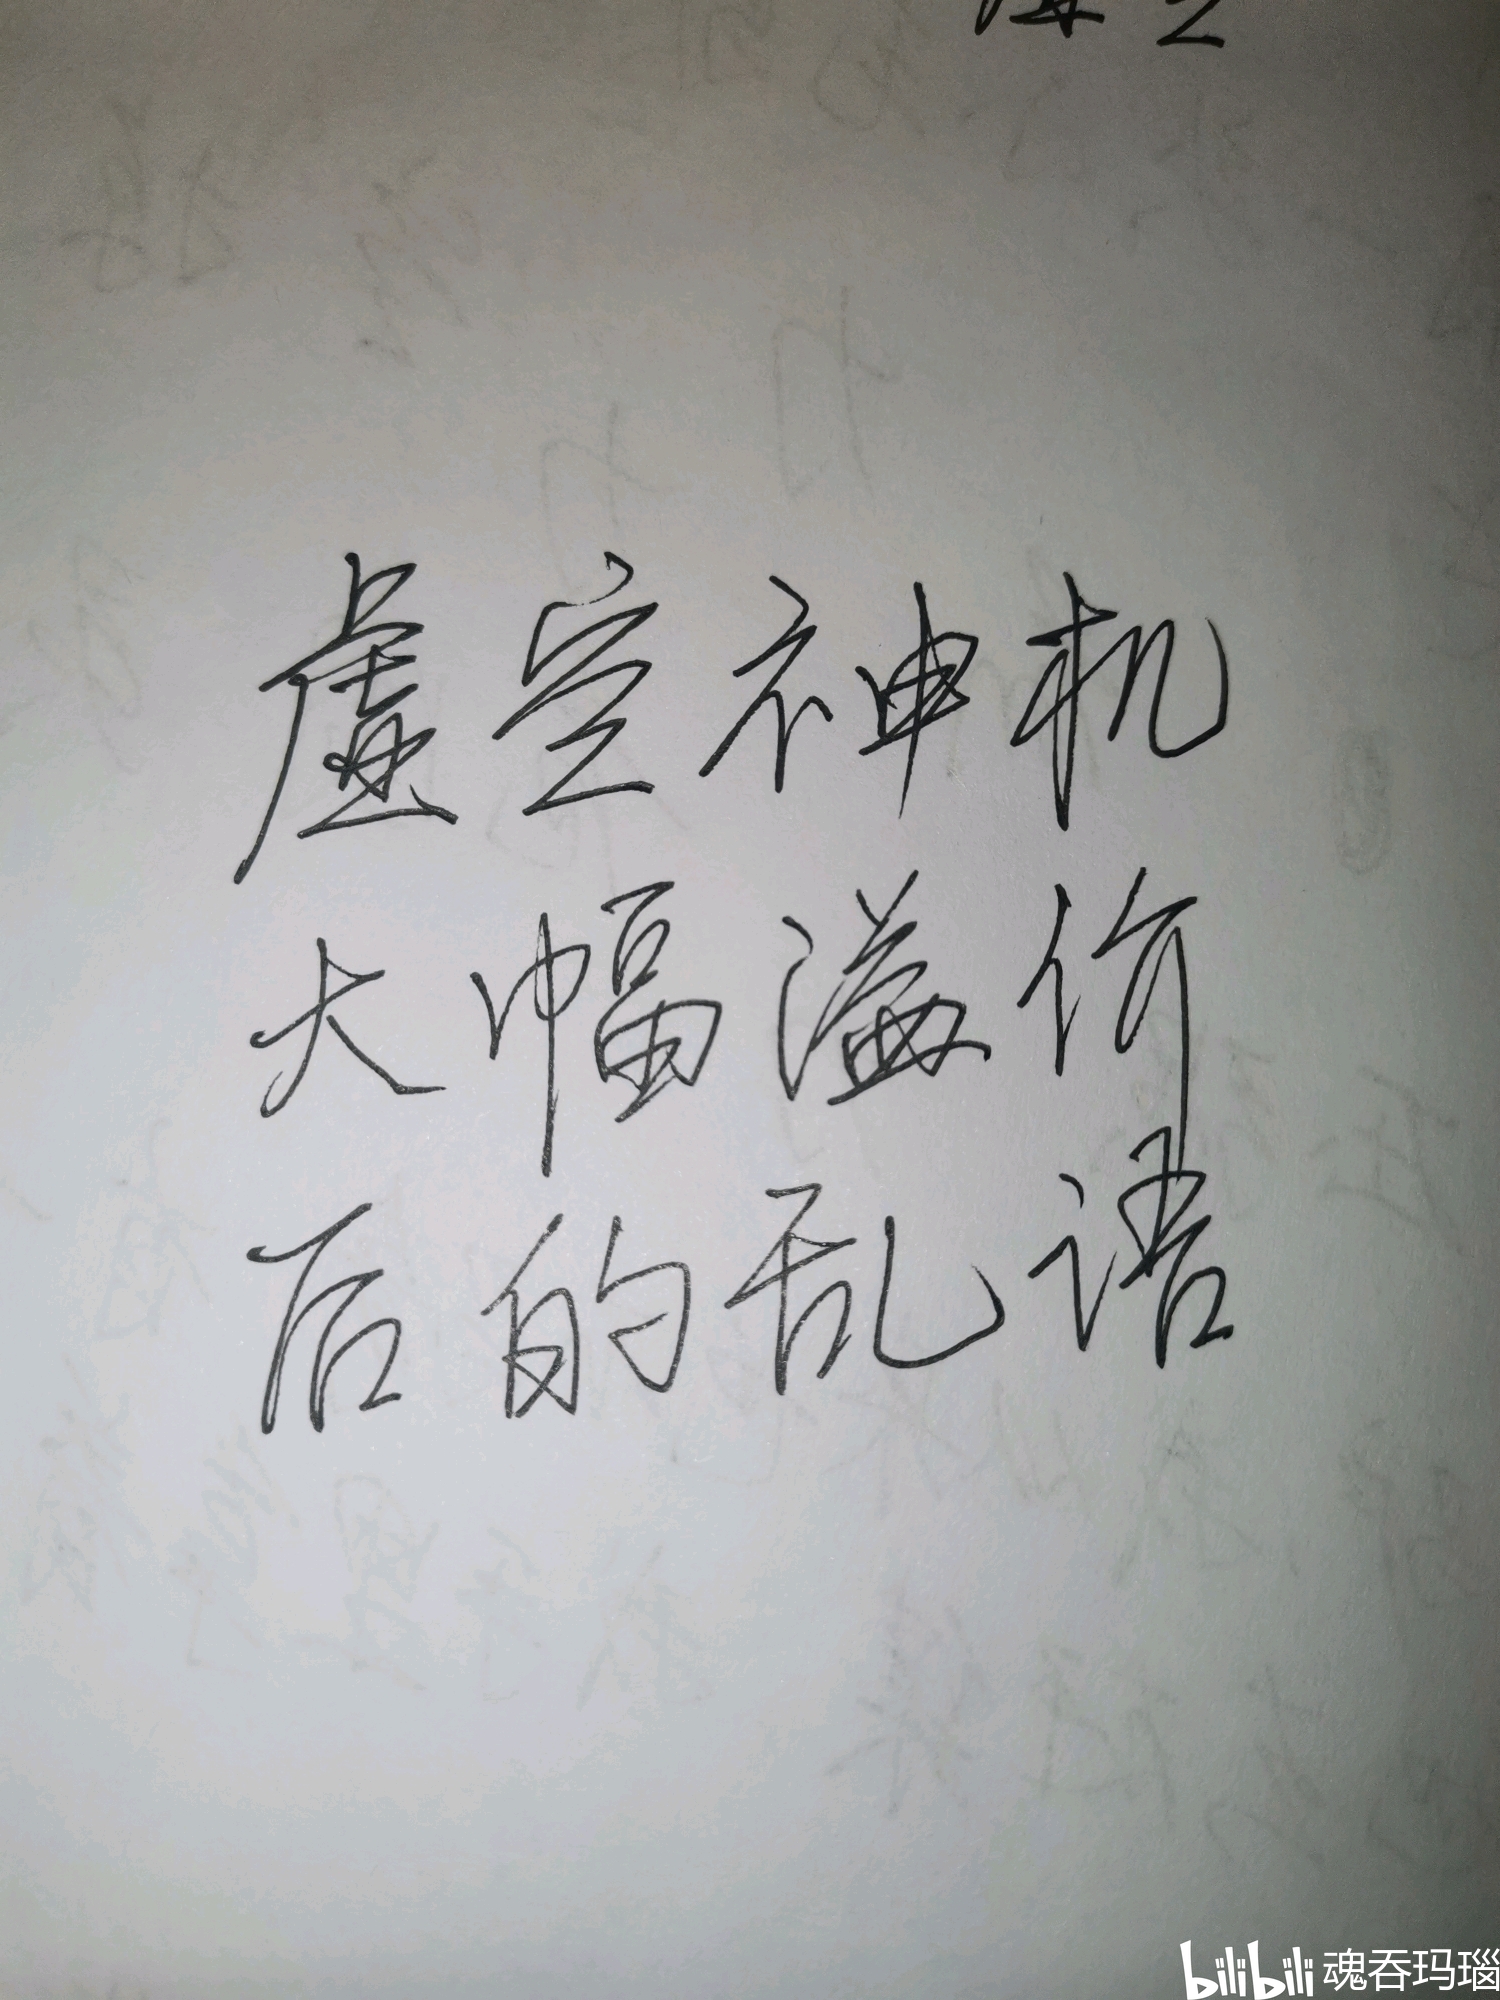 虚空神机
大幅溢价
后的乱语
bilibili 魂吞玛瑙